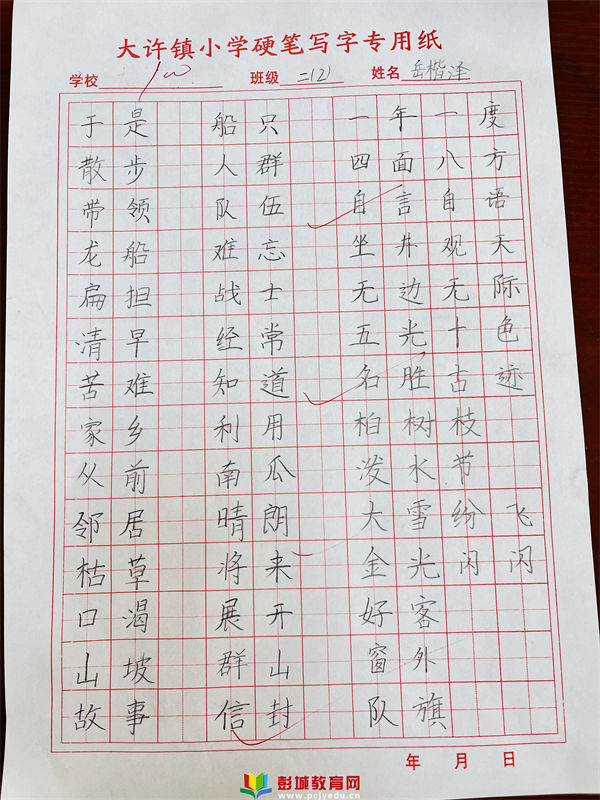 大许镇小学硬笔写字专用纸
学校 100 班级 二(2) 姓名 岳楷泽
于是 船只 一年一度
散步 人群 四面八方
带领 队伍 自言自语
龙船 难忘 坐井观天
扁担 战士 无边无际
清早 经常 五光十色
苦难 知道 名胜古迹
家乡 利用 柏树枝
从前 南瓜 泼水节
邻居 晴朗 大雪纷飞
枯草 将来 金光闪闪
口渴 展开 好客
山坡 群山 窗外
故事 信封 队旗
年 月 日
彭城教育网
www.pcjyedu.cn